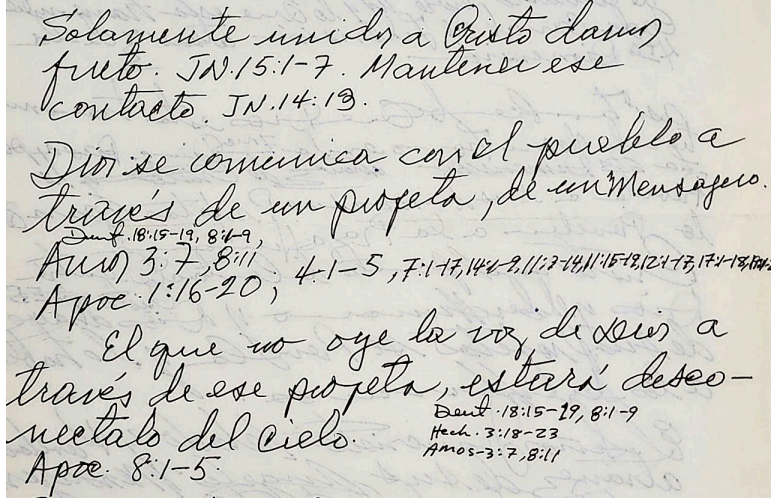 Solamente unidos a Cristo damos
fruto. JN.15:1-7. Mantener ese
contacto. JN.14:13.
Dios se comunica con el pueblo a
través de un profeta, de un Mensagero.
Deut. 18:15-19, 8:1-9,
Amos 3:7, 8:11
Apoc. 1:16-20; 4:1-5, 7:1-17, 14:1-9, 11:3-14, 11:15-19, 12:1-17, 17:1-18,
El que no oye la voz de Dios a
través de ese profeta, estará desco-
nectado del cielo.
Deut. 18:15-19, 8:1-9
Hech. 3:18-23
Amos-3:7, 8:11
Apoc. 8:1-5